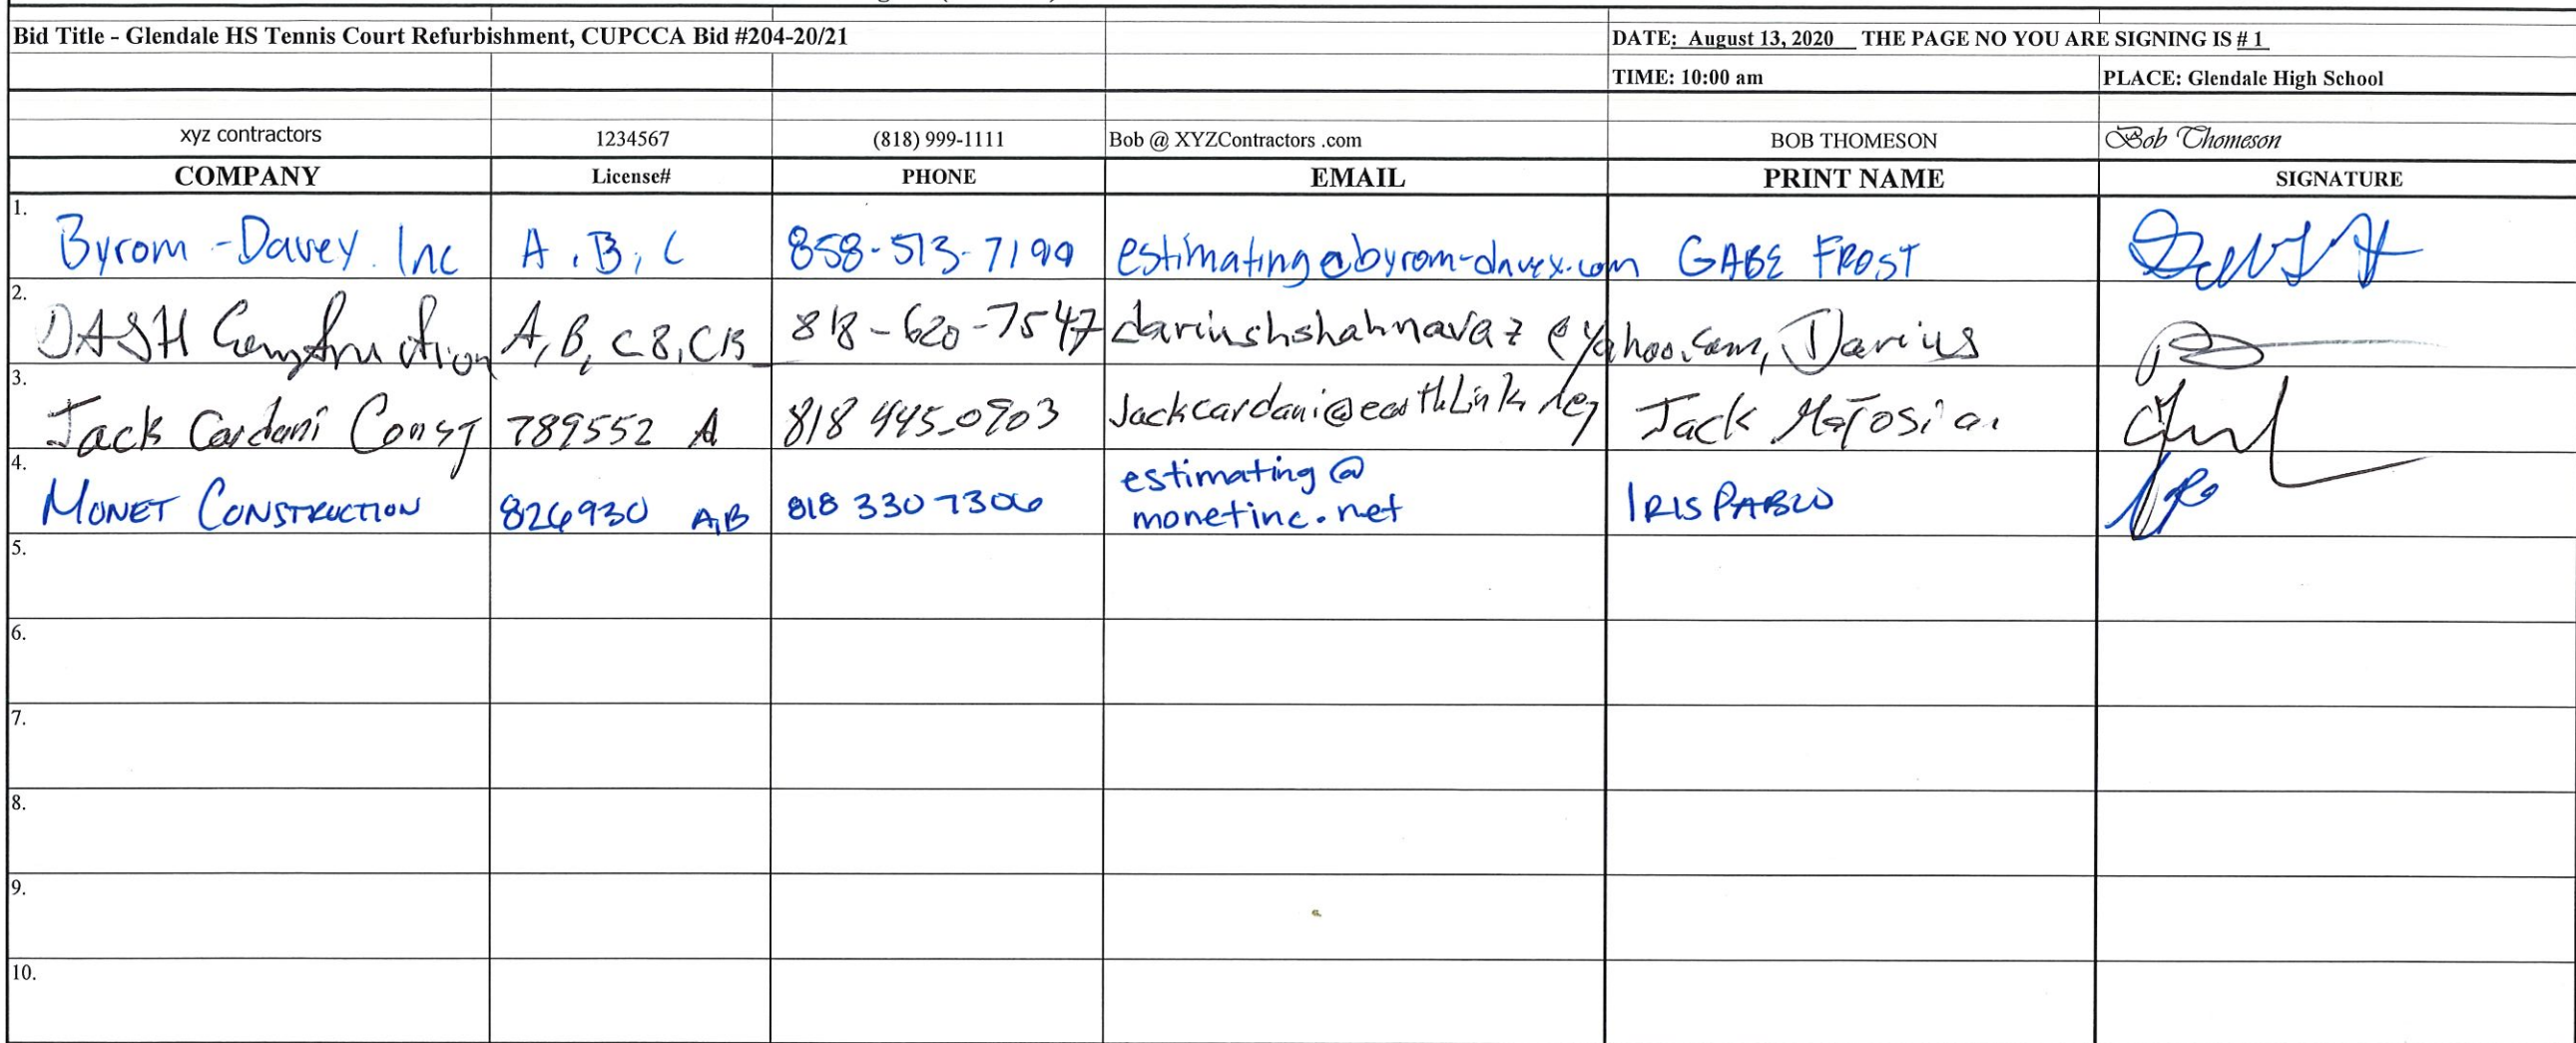 Bid Title - Glendale HS Tennis Court Refurbishment, CUPCCA Bid #204-20/21 DATE: August 13, 2020 THE PAGE NO YOU ARE SIGNING IS # 1
TIME: 10:00 am PLACE: Glendale High School
xyz contractors 1234567 (818) 999-1111 Bob @ XYZContractors .com BOB THOMESON Bob Thomeson
COMPANY License# PHONE EMAIL PRINT NAME SIGNATURE
1. Byrom-Davey. Inc A, B, C 858-513-7199 estimating@byrom-davey.com GABE FROST
2. DASH Construction A, B, C8, 818-620-7547 dariushshahnavaz@yahoo.com, Darius
3. Jack Cardani Const 789552 A 818 445-0903 Jackcardani@earthLink Jack
4. MONET CONSTRUCTION 826930 A,B 818 330 7306 estimating@
monetinc.net IRIS PABLO
5.
6.
7.
8.
9.
10.